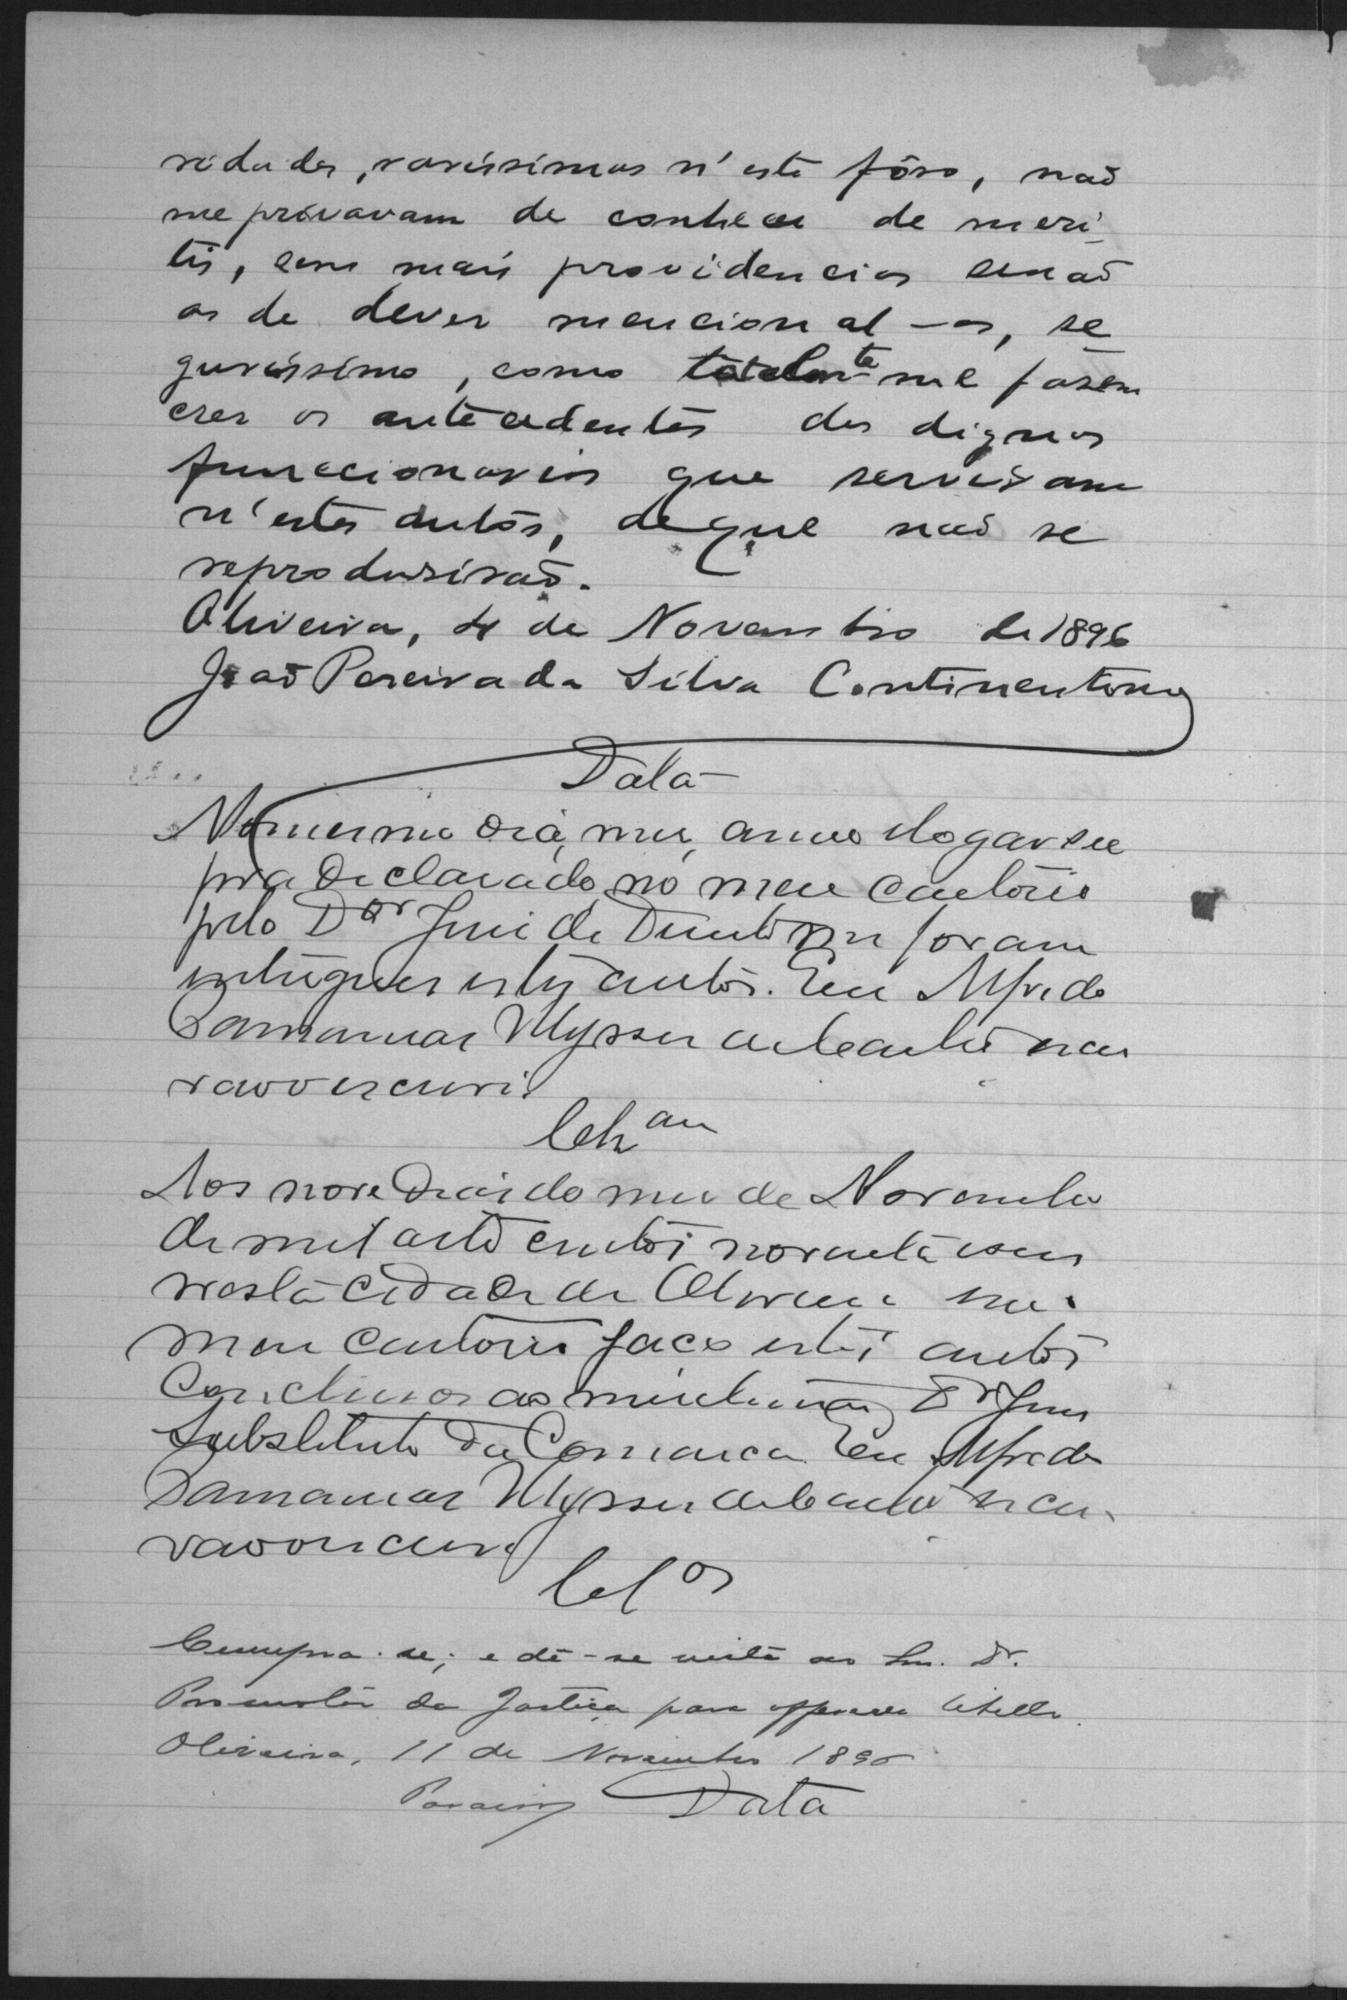 ridades, rarissimas n'este fôro, naõ
me privavam de conhecer de meri-
tis, sem mais providencias senaõ
as de dever mencional-as, se-
gurissimo, como me fasem
crer os antecedentes dos dignos
funccionarios que serviram
n'estes autos, de que naõ se
reprodusiraõ.
Oliveira, 4 de Novembro de 1896
Joaõ Pereira da Silva Continentino
Data
No mesmo dia, mes, anno e logar su
pra declarado, no meu cartorio
pelo Dor Juiz de Direito me foram
entregues estes autos. Eu Alfredo
Damamas Ulysses escri
vaõ o escrevi.
Clzam
Aos nove dias do mes de Novembro
de mil oito centos noventa e seis
nesta cidade de Oliveira em
meu cartorio faço estes autos
Conclusos ao Dr Juiz
Substituto da Comarca. Eu Alfredo
Damamas Ulysses escri
vaõ o escrevi.
Clos
Cumpra-se; e dê-se vista ao Snr. Dr.
Promotor da Justiça para offerecer libello.
Oliveira, 11 de Novembro 1896
Data